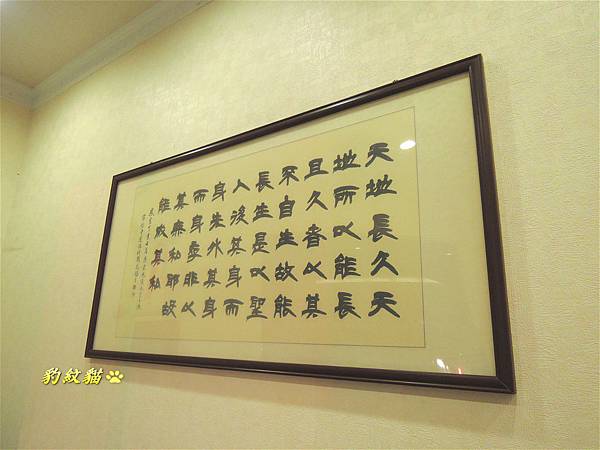 天地長久天
地所以能長
且久者以其
不自生故能
長生是以聖
人後其身而
身先外其身
而身存非以
其無私耶故
能成其私
豹紋貓